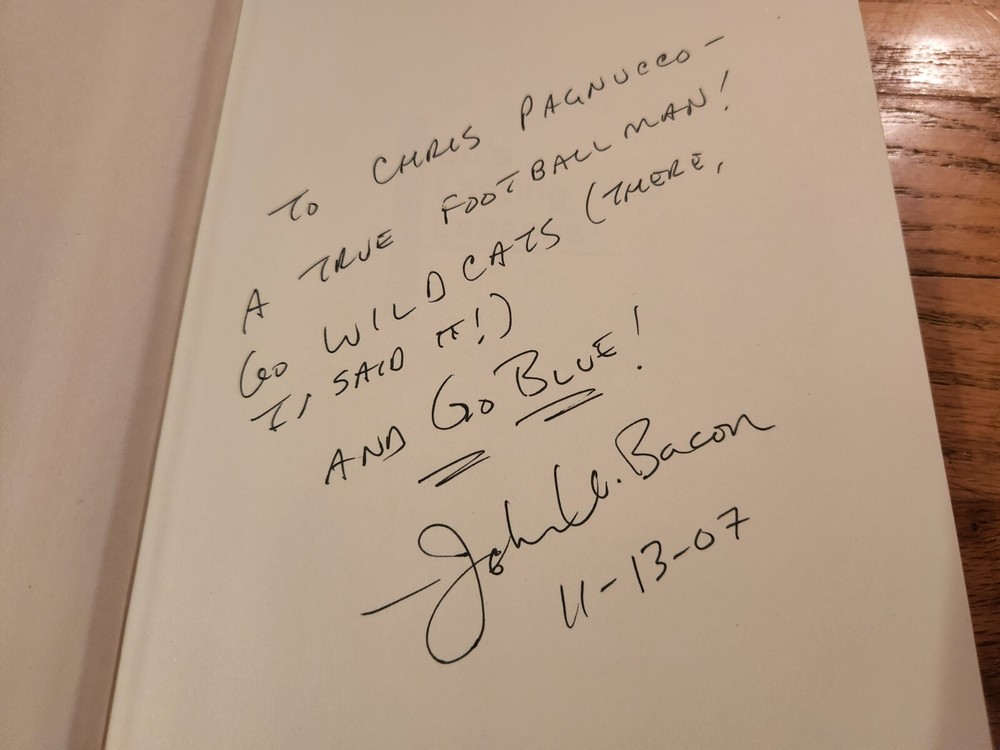 TO CHRIS PAGNUCCO -
A TRUE FOOTBALL MAN!
GO WILDCATS (THERE,
I, SAID IT!)
AND GO BLUE!
- John U. Bacon
11-13-07